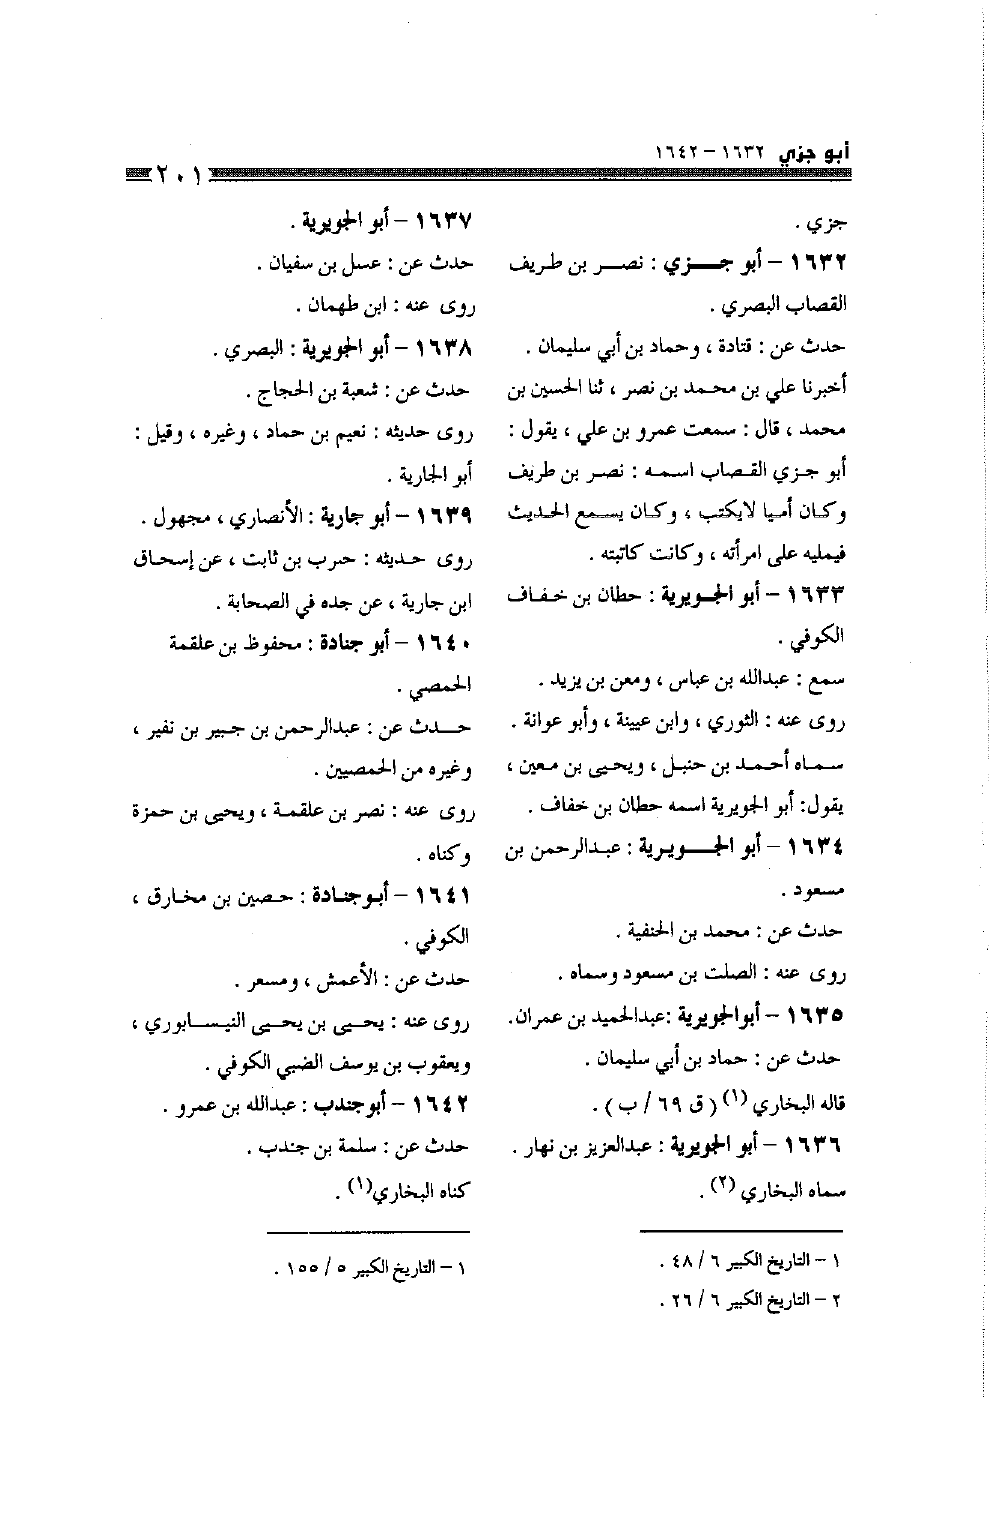 أبو جزي ١٦٣٢ – ١٦٤٢
٢٠١
جزي .
١٦٣٢ – أبو جـــزي : نصـــر بن طريف
القصاب البصري .
حدث عن : قتادة ، وحماد بن أبي سليمان .
أخبرنا علي بن محمد بن نصر ، ثنا الحسين بن
محمد ، قال : سمعت عمرو بن علي ، يقول :
أبو جزي القصاب اسمه : نصر بن طريف
وكان أميا لايكتب ، وكان يسمع الحديث
فيمليه على امرأته ، وكانت كاتبته .
١٦٣٣ – أبو الجويرية : حطان بن خفاف
الكوفي .
سمع : عبدالله بن عباس ، ومعن بن يزيد .
روى عنه : الثوري ، وابن عيينة ، وأبو عوانة .
سماه أحمد بن حنبل ، ويحيى بن معين ،
يقول: أبو الجويرية اسمه حطان بن خفاف .
١٦٣٤ – أبو الجـــويرية : عبدالرحمن بن
مسعود .
حدث عن : محمد بن الحنفية .
روى عنه : الصلت بن مسعود وسماه .
١٦٣٥ – أبوالجويرية :عبدالحميد بن عمران.
حدث عن : حماد بن أبي سليمان .
قاله البخاري (١) ( ق ٦٩ / ب ) .
١٦٣٦ – أبو الجويرية : عبدالعزيز بن نهار .
سماه البخاري (٢) .
١ – التاريخ الكبير ٦ / ٤٨ .
٢ – التاريخ الكبير ٦ / ٢٦ .
١٦٣٧ – أبو الجويرية .
حدث عن : عسل بن سفيان .
روى عنه : ابن طهمان .
١٦٣٨ – أبو الجويرية : البصري .
حدث عن : شعبة بن الحجاج .
روى حديثه : نعيم بن حماد ، وغيره ، وقيل :
أبو الجارية .
١٦٣٩ – أبو جارية : الأنصاري ، مجهول .
روى حديثه : حرب بن ثابت ، عن إسحاق
ابن جارية ، عن جده في الصحابة .
١٦٤٠ – أبو جنادة : محفوظ بن علقمة
الحمصي .
حـــدث عن : عبدالرحمن بن جبير بن نفير ،
وغيره من الحمصيين .
روى عنه : نصر بن علقمة ، ويحيى بن حمزة
وكناه .
١٦٤١ – أبوجنادة : حصين بن مخارق ،
الكوفي .
حدث عن : الأعمش ، ومسعر .
روى عنه : يحيى بن يحيى النيسابوري ،
ويعقوب بن يوسف الضبي الكوفي .
١٦٤٢ – أبوجندب : عبدالله بن عمرو .
حدث عن : سلمة بن جندب .
كناه البخاري(١) .
١ – التاريخ الكبير ٥ / ١٥٥ .